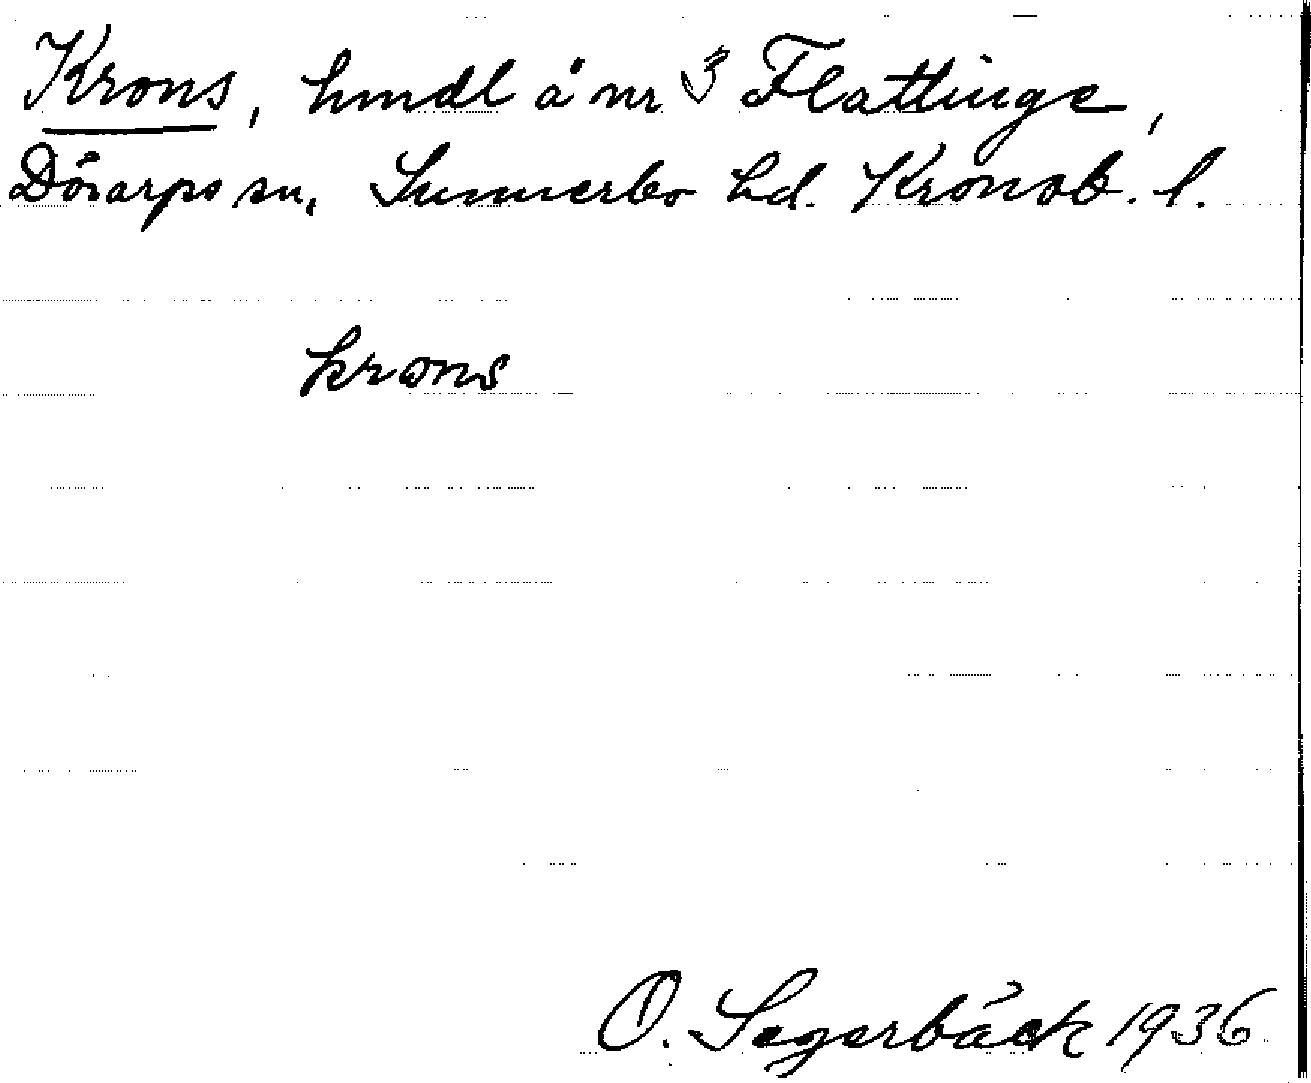 Krons, hmdl å nr 3 Flattinge,
Dörarps sn, Sunnerbo hd. Kronob. l.
krons
O. Segerbäck 1936